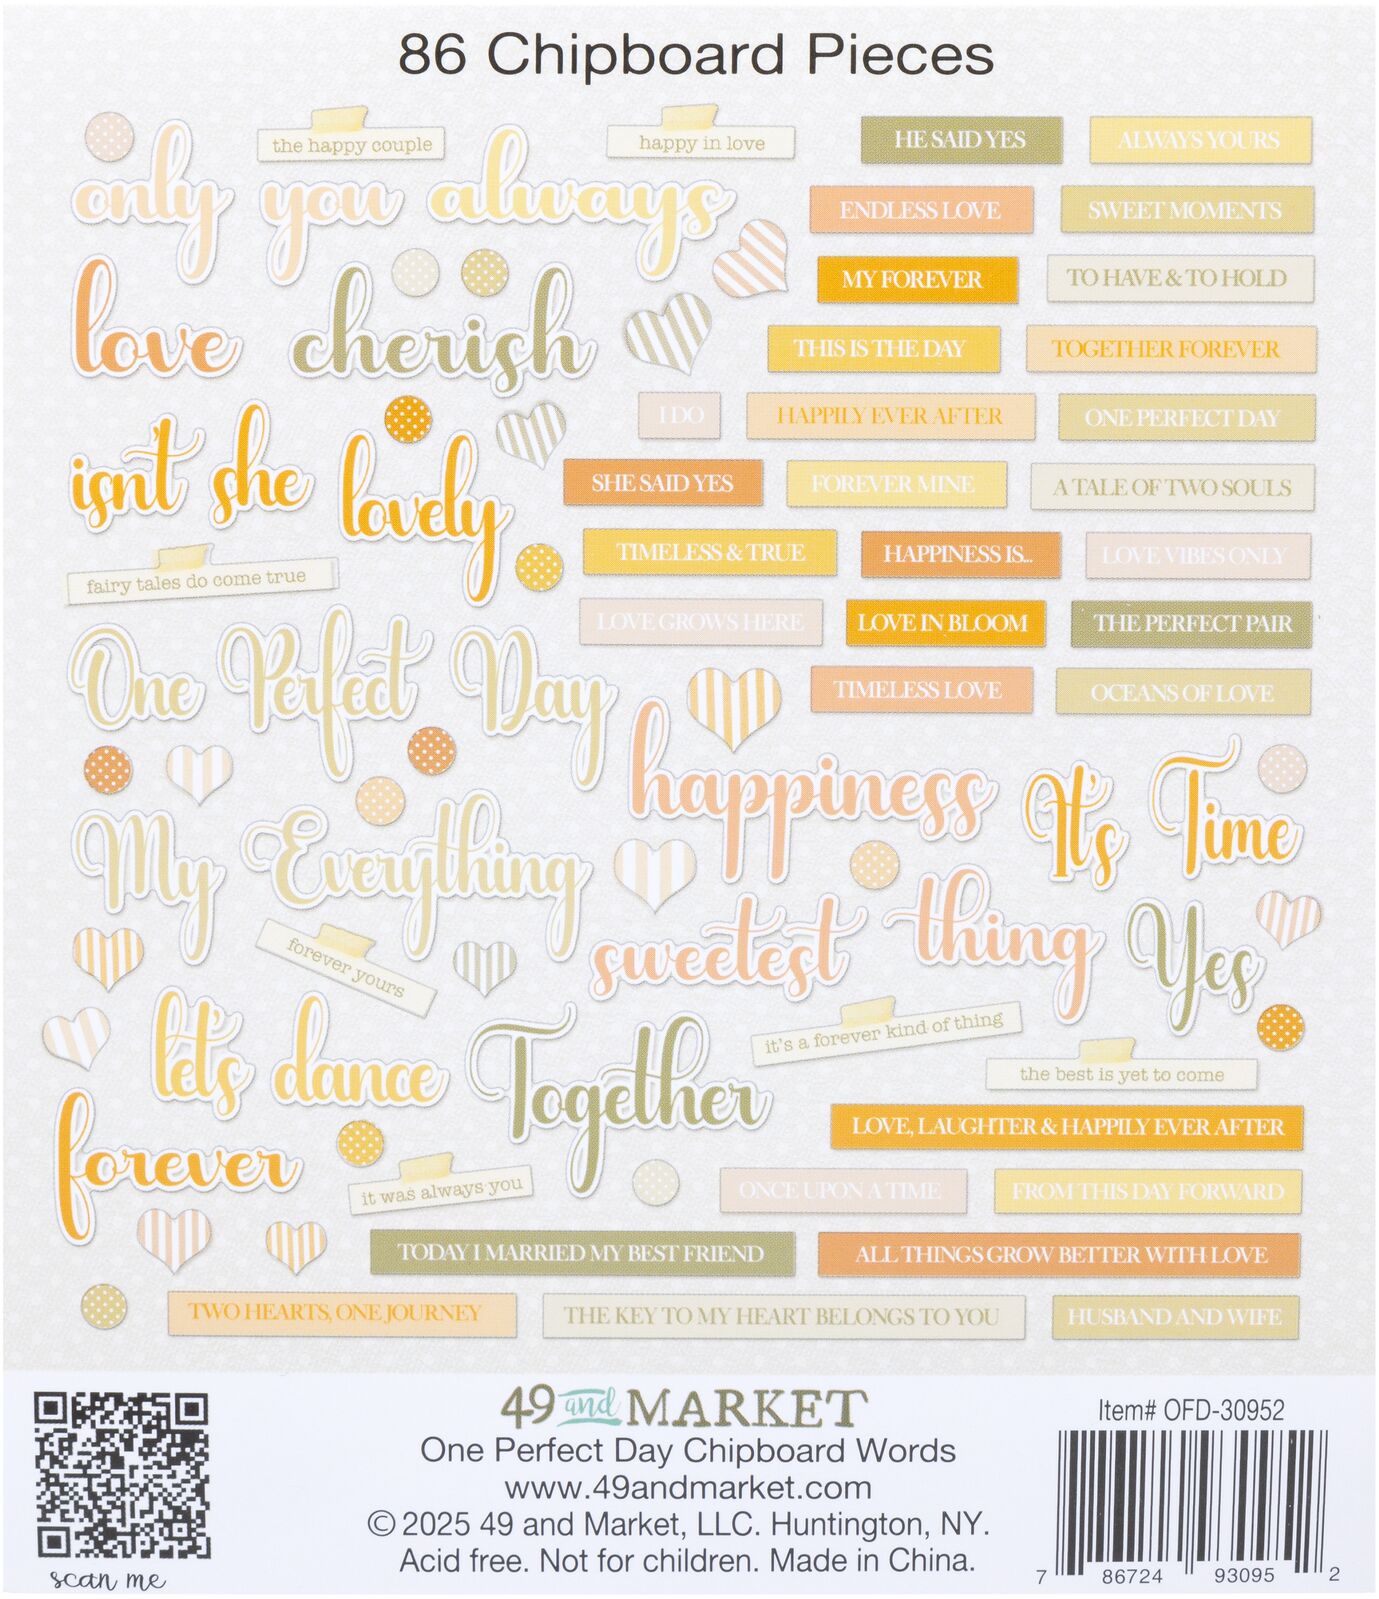 86 Chipboard Pieces
the happy couple
happy in love
HE SAID YES
ALWAYS YOURS
only you always
ENDLESS LOVE
SWEET MOMENTS
MY FOREVER
TO HAVE & TO HOLD
love cherish
THIS IS THE DAY
TOGETHER FOREVER
I DO
HAPPILY EVER AFTER
ONE PERFECT DAY
isn't she lovely
SHE SAID YES
FOREVER MINE
A TALE OF TWO SOULS
TIMELESS & TRUE
HAPPINESS IS...
LOVE VIBES ONLY
fairy tales do come true
LOVE GROWS HERE
LOVE IN BLOOM
THE PERFECT PAIR
One Perfect Day
TIMELESS LOVE
OCEANS OF LOVE
happiness
It's Time
My Everything
sweetest thing
Yes
forever yours
let's dance
Together
it's a forever kind of thing
the best is yet to come
forever
LOVE, LAUGHTER & HAPPILY EVER AFTER
it was always you
ONCE UPON A TIME
FROM THIS DAY FORWARD
TODAY I MARRIED MY BEST FRIEND
ALL THINGS GROW BETTER WITH LOVE
TWO HEARTS, ONE JOURNEY
THE KEY TO MY HEART BELONGS TO YOU
HUSBAND AND WIFE
scan me
49 and MARKET
One Perfect Day Chipboard Words
www.49andmarket.com
© 2025 49 and Market, LLC. Huntington, NY.
Acid free. Not for children. Made in China.
Item# OFD-30952
7 86724 93095 2